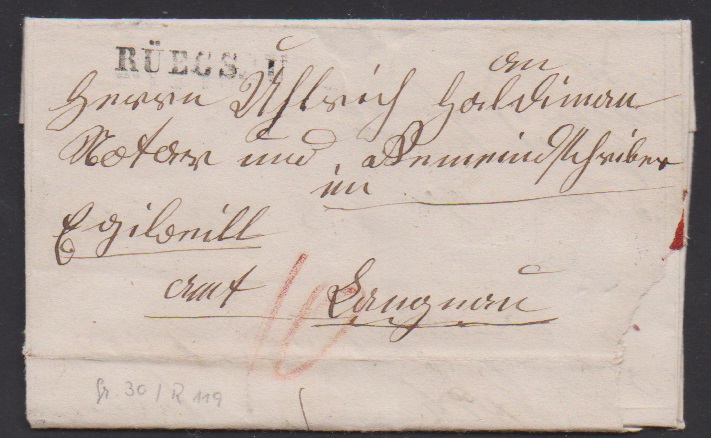 RÜEGSAU
an
Herrn Uhlrich Haldiman
Notar und Gemeindschriber
im
Egiweill
amt Langnau
10
gr. 30 / R 119